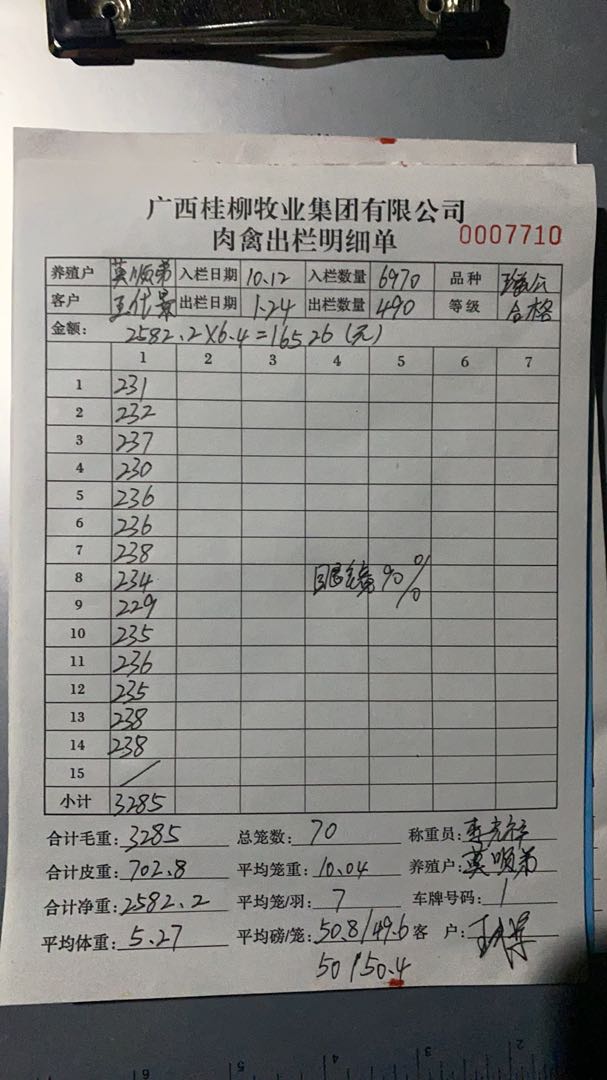 广西桂柳牧业集团有限公司
肉禽出栏明细单 0007710
养殖户 莫顺弟 入栏日期 10.12 入栏数量 6970 品种
客户 出栏日期 1.24 出栏数量 490 等级 合格
金额: 2582.2×6.4=16526(元)
1 2 3 4 5 6 7
1 231
2 232
3 237
4 230
5 236
6 236
7 238
8 234 90%
9 229
10 235
11 236
12 235
13 238
14 238
15 /
小计 3285
合计毛重: 3285 总笼数: 70 称重员:
合计皮重: 702.8 平均笼重: 10.04 养殖户: 莫顺弟
合计净重: 2582.2 平均笼/羽: 7 车牌号码: 1
平均体重: 5.27 平均磅/笼: 50.8/49.6 客 户:
50/50.4